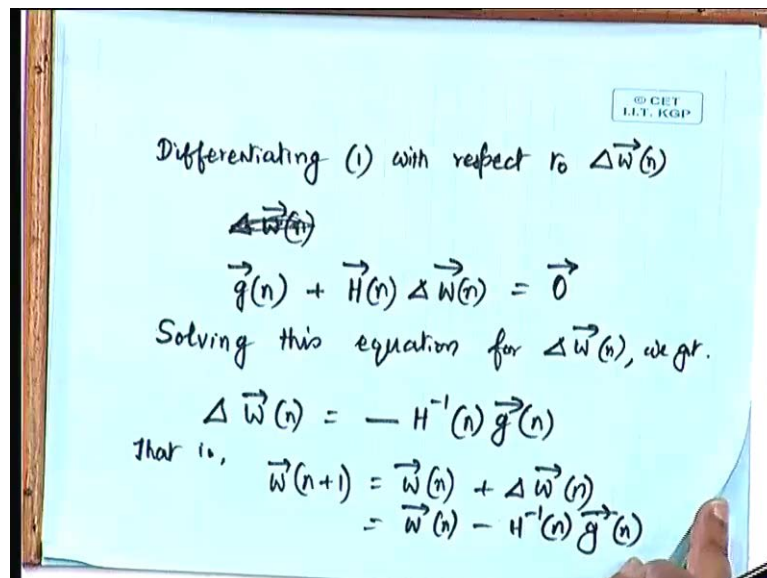 © CET
I.I.T. KGP
Differentiating (1) with respect to Δw⃗(n)
g⃗(n) + H⃗(n) Δw⃗(n) = 0⃗
Solving this equation for Δw⃗(n), we get.
Δw⃗(n) = − H⁻¹(n) g⃗(n)
That is,
w⃗(n+1) = w⃗(n) + Δw⃗(n)
= w⃗(n) − H⁻¹(n) g⃗(n)